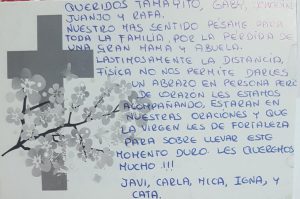 QUERIDOS TAMAYITO, GABY, JOAQUIN,
JUANJO Y RAFA.
NUESTRO MAS SENTIDO PÉSAME PARA
TODA LA FAMILIA, POR LA PERDIDA DE
UNA GRAN MAMA Y ABUELA.
LASTIMOSAMENTE LA DISTANCIA
FISICA NO NOS PERMITE DARLES
UN ABRAZO EN PERSONA PERO
DE CORAZON LES ESTAMOS
ACOMPAÑANDO, ESTARAN EN
NUESTRAS ORACIONES Y QUE
LA VIRGEN LES DE FORTALEZA
PARA SOBRE LLEVAR ESTE
MOMENTO DURO. LES QUEREMOS
MUCHO !!!
JAVI, CARLA, MICA, IGNA, Y
CATA.